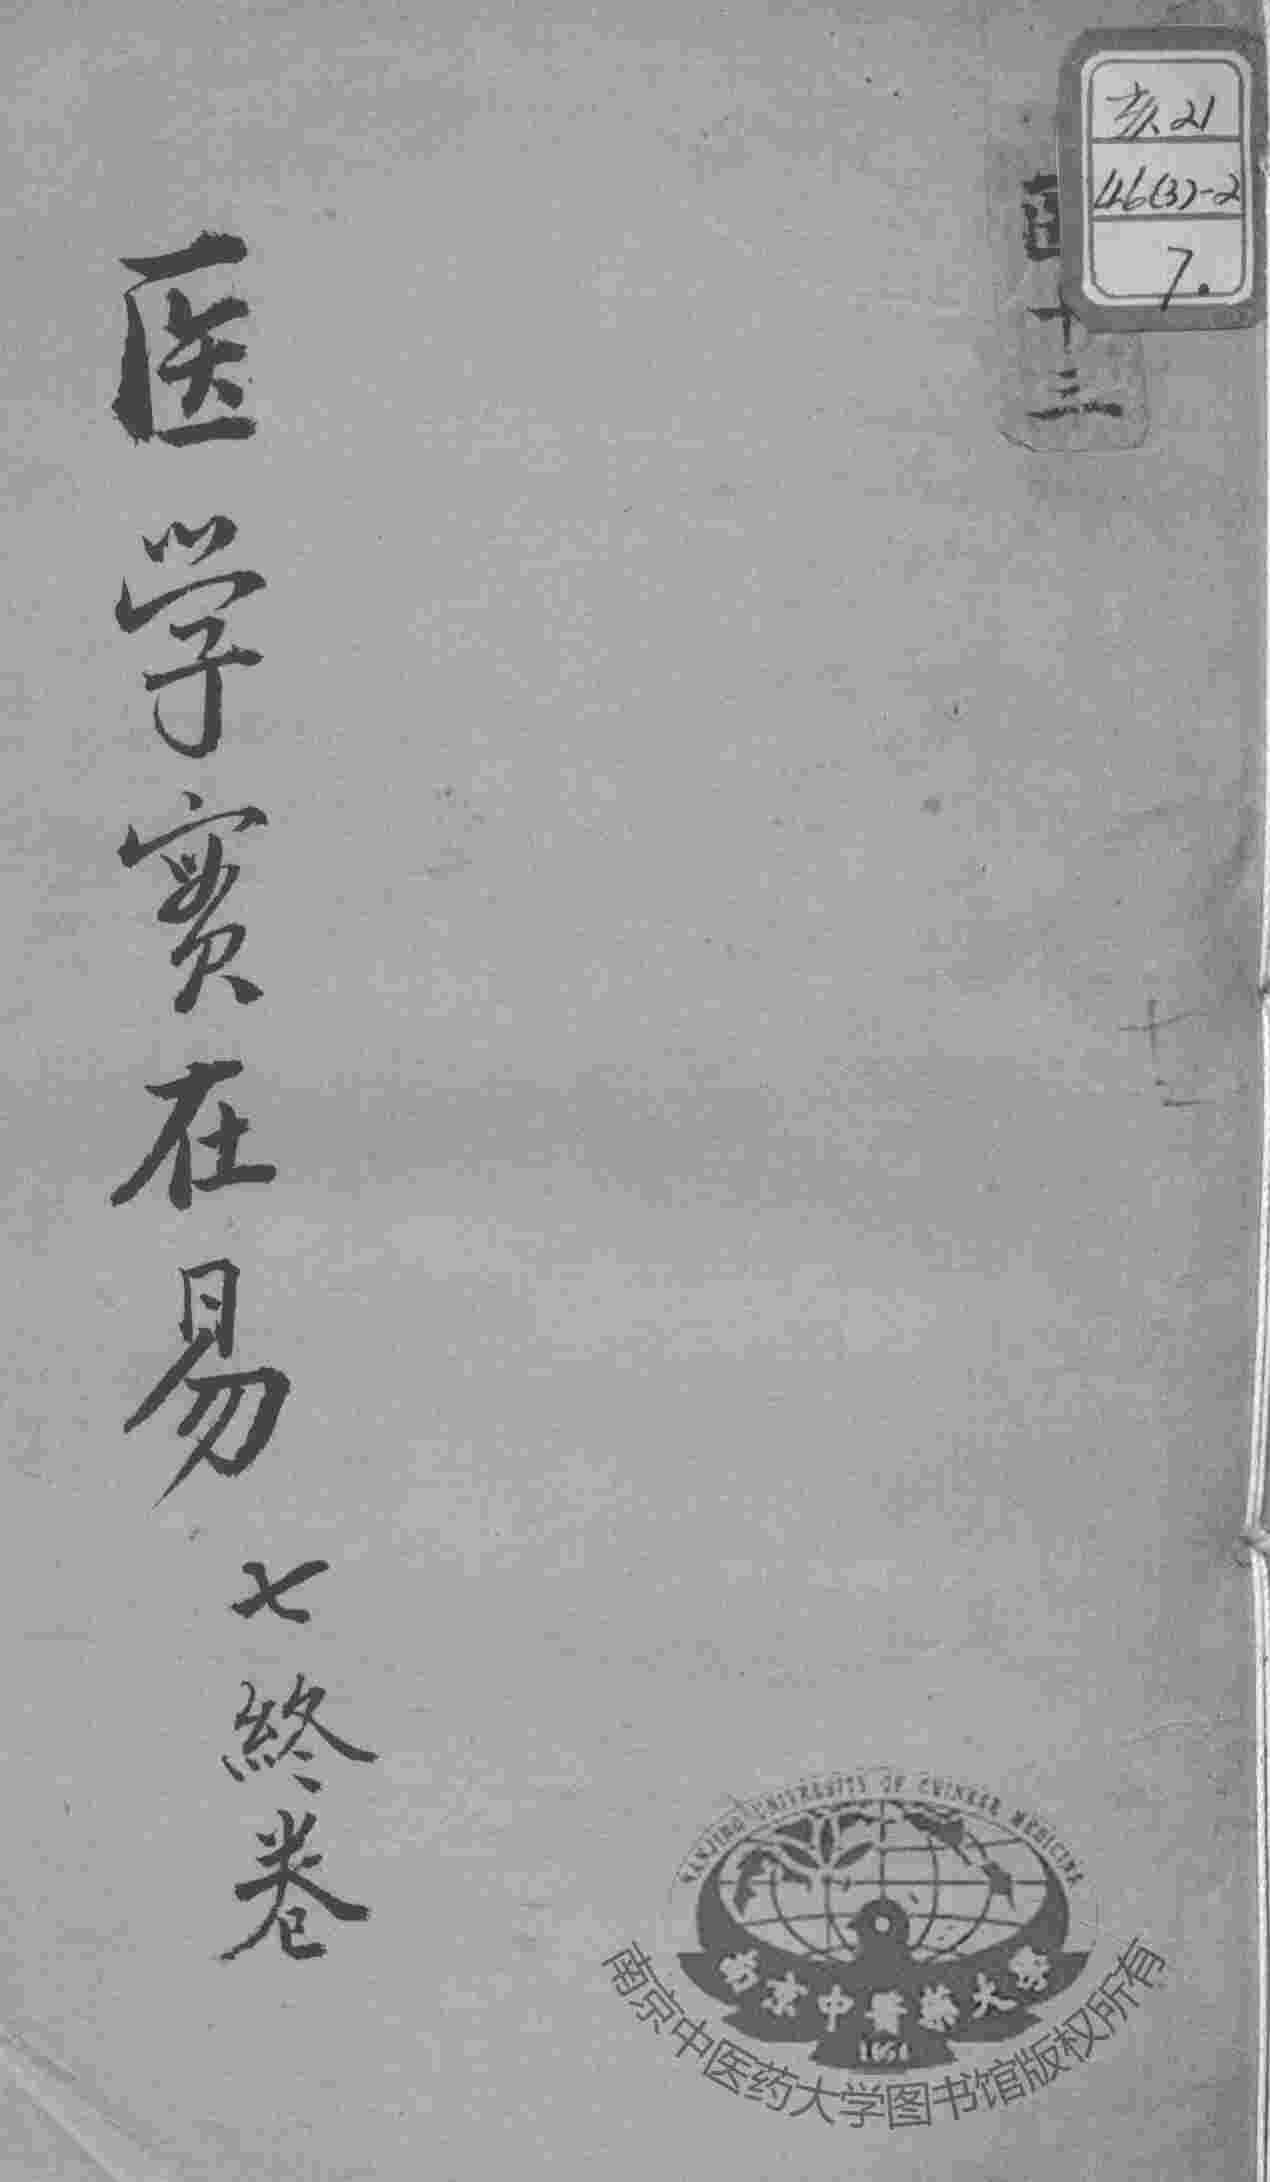 亥21
46(3)-2
7.
十三
医学實在易
七終卷
十二
NANJING UNIVERSITY OF CHINESE MEDICINE
南京中醫藥大學
南京中医药大学图书馆版权所有